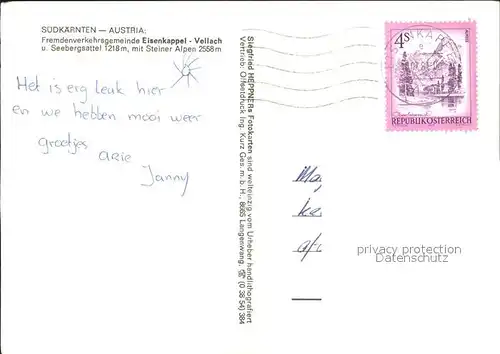 SÜDKÄRNTEN — AUSTRIA:
Fremdenverkehrsgemeinde Eisenkappel - Vellach
u. Seebergsattel 1218m, mit Steiner Alpen 2558m
Het is erg leuk hier
en we hebben mooi weer
groetjes Arie
Janny
Siegfried HEPPNERs Fotokarten sind welteinzig vom Urheber handlithografiert
Vertrieb: Offsetdruck Ing. Kurz Ges. m. b. H., 8665 Langenwang, ☏ (0 38 54) 384
4S
REPUBLIK ÖSTERREICH
privacy protection
Datenschutz